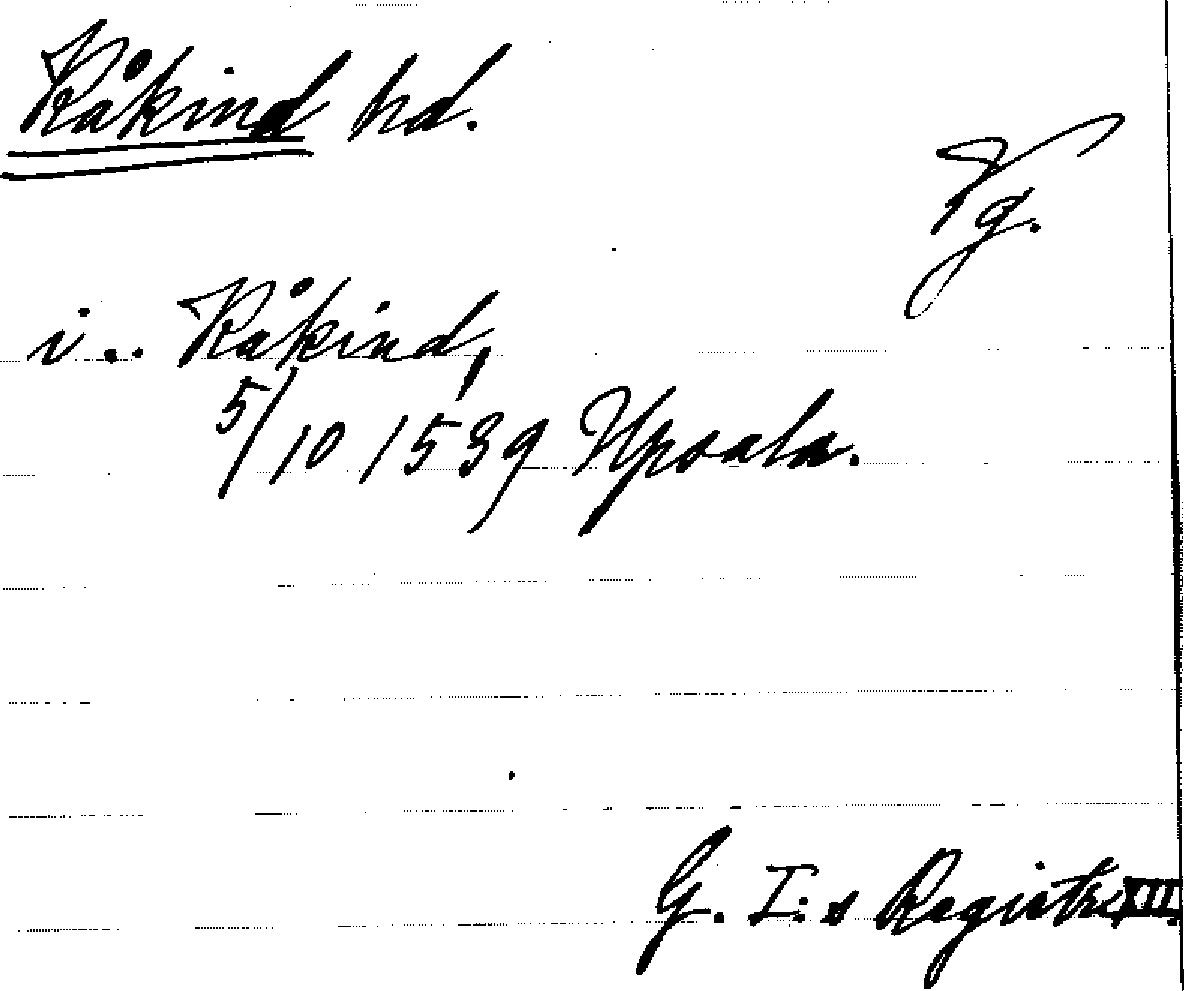 Kåkind hd.
Vg.
i .. Kåkind,
5/10 1539 Upsala.
G. I:s Registr. XII.